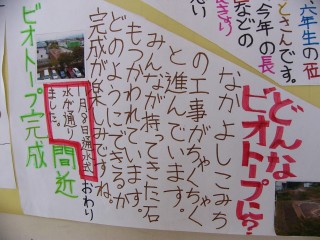 どんな
ビオトープに？
なかよしこみち
の工事がちゃくちゃく
と進んでいます。
みんなが持ってきた石
もつかわれています。
どのようにできるか
完成が楽しみですね。
おわり
月8日通水式
水が通り
ました。
ビオトープ完成
間近
六年生の
とさんです。
今年の長